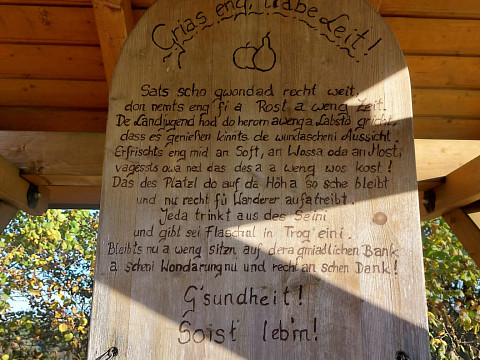 Grias eng, liabe Leit!
Sats scho gwondad recht weit,
don nemts eng fi a Rost a weng Zeit.
De Landjugend hod do herom a weng a Labstö gricht,
dass es genießen kinnts de wundascheni Aussicht.
Erfrischts eng mid an Soft, an Wossa oda an Most,
vagessts owa ned das des a a weng wos kost!
Das des Platzl do auf da Höha so sche bleibt
und nu recht fü Wanderer aufatreibt.
Jeda trinkt aus des Seini
und gibt sei Flaschal in Trog eini.
Bleibts nu a weng sitzn auf dera gmiadlichen Bank
a scheni Wondarung nu und recht an schen Dank!
G'sundheit!
Soist leb'm!